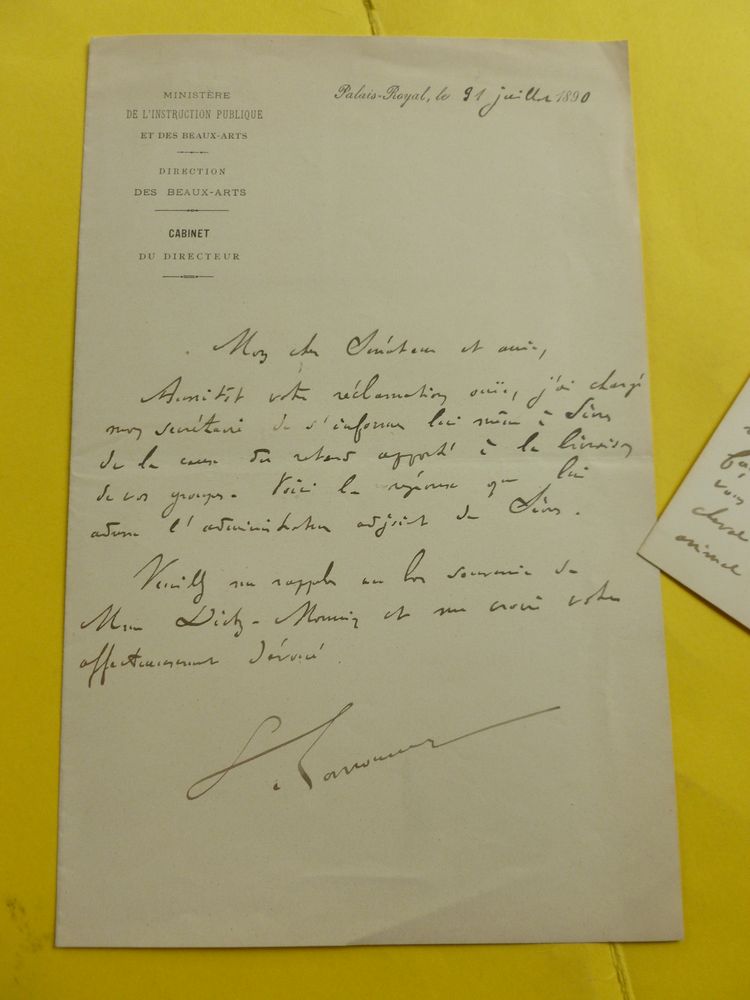 MINISTÈRE
DE L'INSTRUCTION PUBLIQUE
ET DES BEAUX-ARTS
DIRECTION
DES BEAUX-ARTS
CABINET
DU DIRECTEUR
Palais-Royal, le 31 juillet 1890
Mon cher Sénateur et ami,
Aussitôt votre réclamation ouïe, j'ai chargé
mon secrétaire de s'informer lui même à Sèvres
de la cause du retard apporté à la livraison
de vos groupes. Voici la réponse que lui
adresse l'administrateur adjoint de Sèvres.
Veuillez me rappeler au bon souvenir de
Mme Dietz-Monnin et me croire votre
affectueusement dévoué.